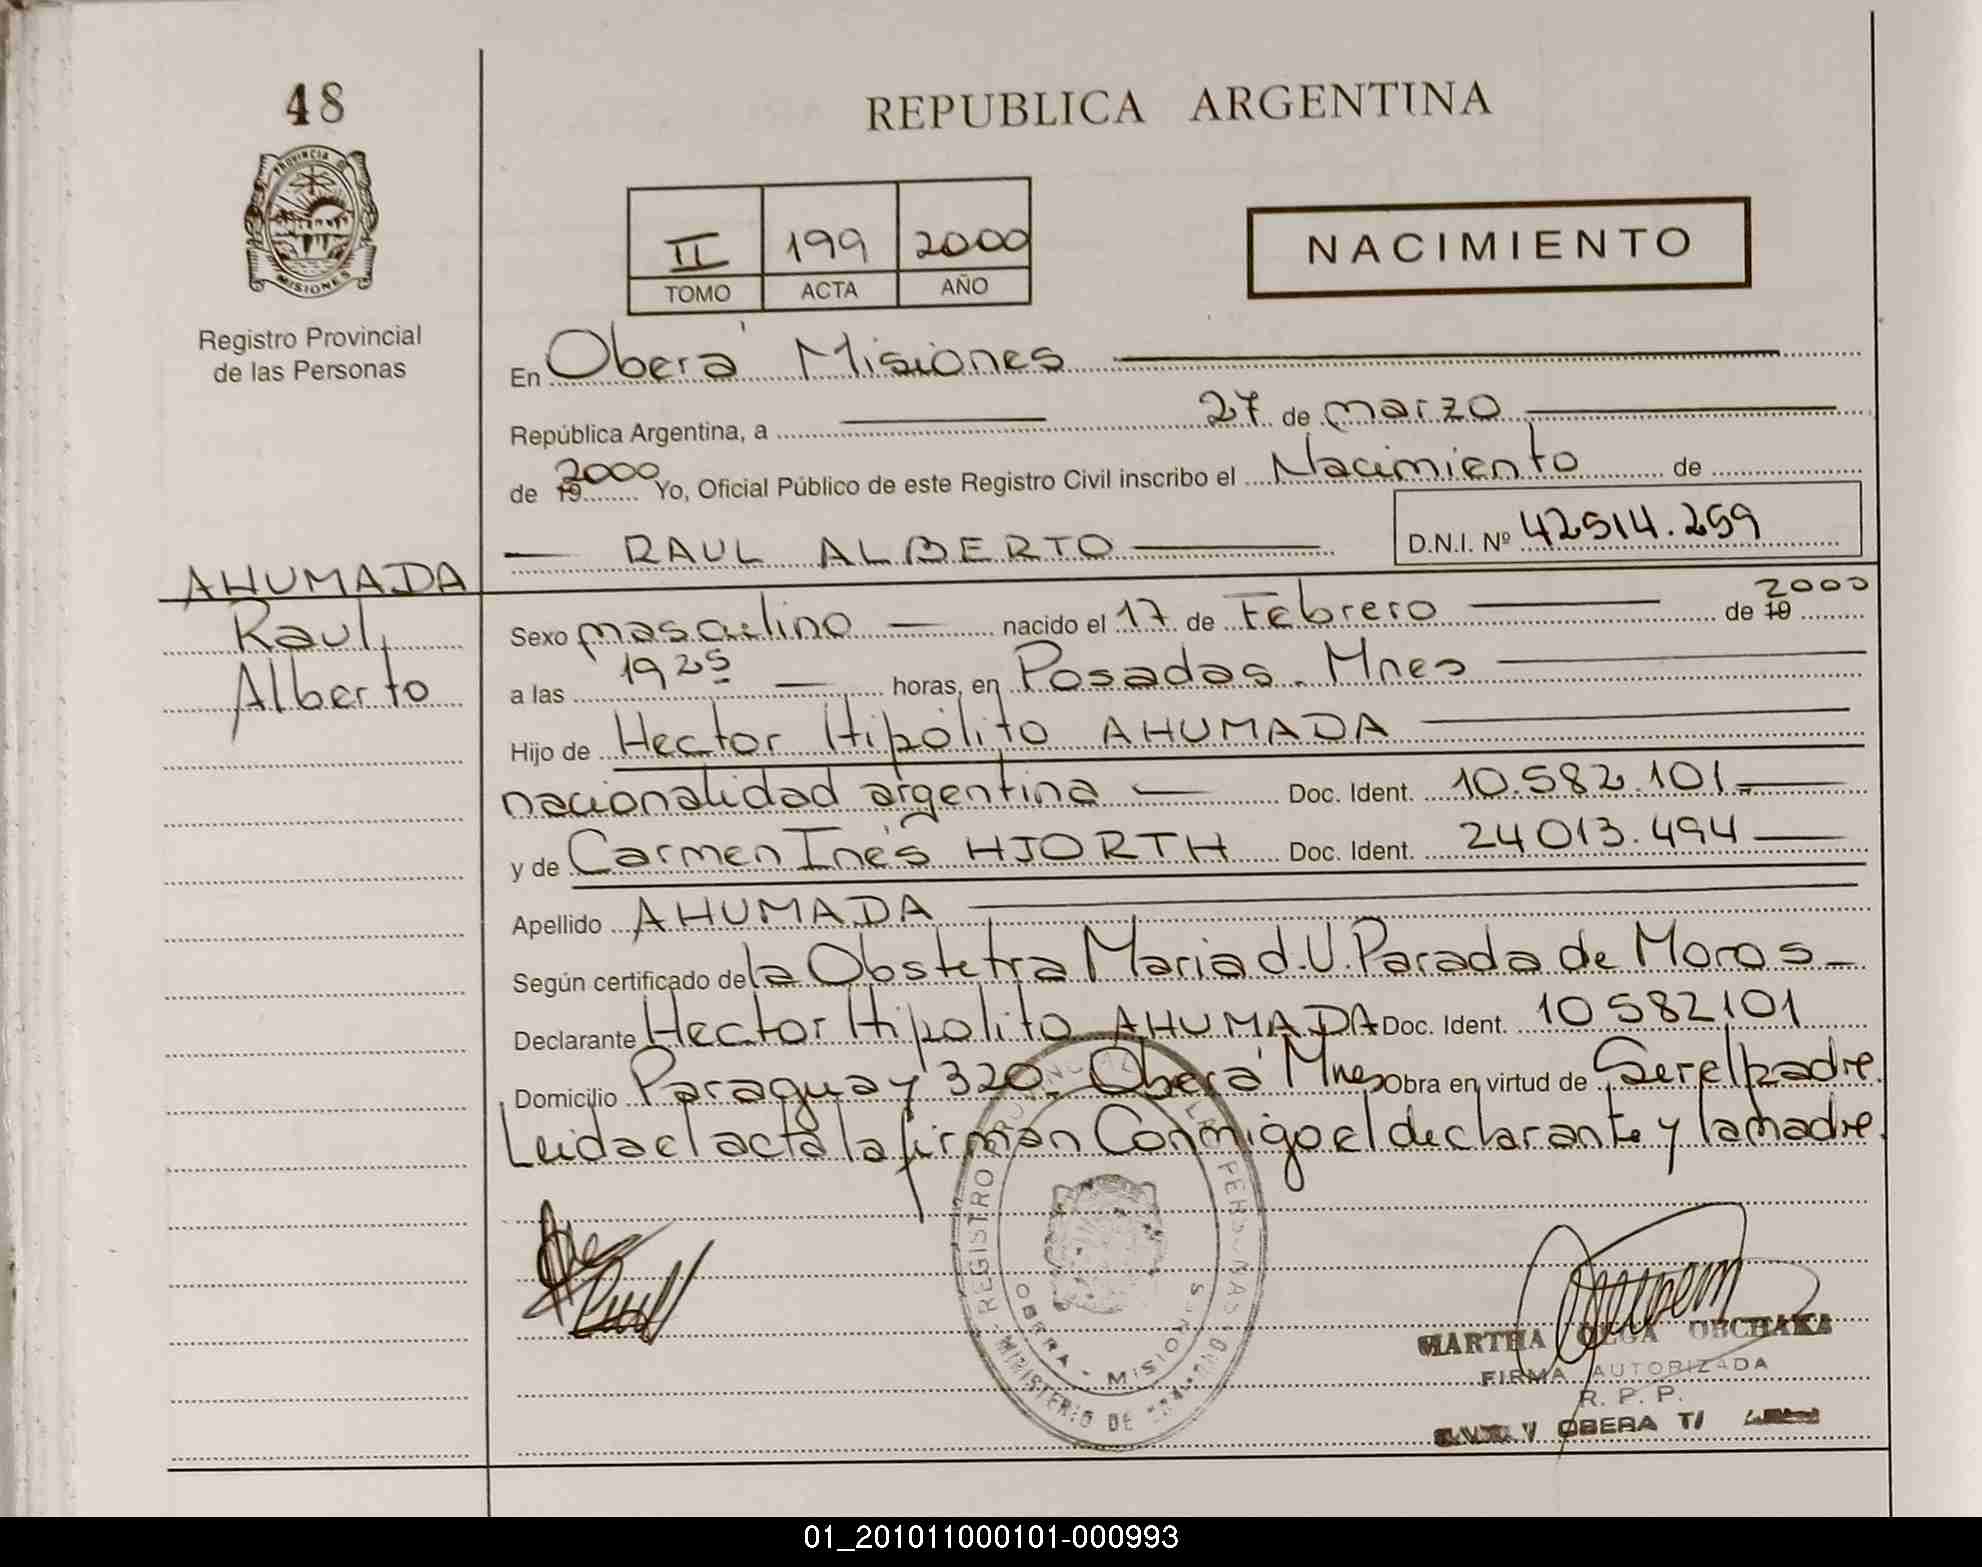 48
REPUBLICA ARGENTINA
PROVINCIA D
MISIONES
II 199 2000
TOMO ACTA AÑO
NACIMIENTO
Registro Provincial
de las Personas
En Oberá Misiones
República Argentina, a 27 de marzo
de 19 2000 Yo, Oficial Público de este Registro Civil inscribo el Nacimiento de
RAUL ALBERTO D.N.I. Nº 42514.259
AHUMADA
Raul
Alberto
Sexo masculino nacido el 17 de Febrero de 19 2000
a las 1925 horas, en Posadas. Mnes
Hijo de Hector Hipólito AHUMADA
nacionalidad argentina Doc. Ident. 10.582.101
y de Carmen Inés HJORTH Doc. Ident. 24013.494
Apellido AHUMADA
Según certificado de la Obstetra Maria d. U. Parada de Moros
Declarante Hector Hipolito AHUMADA Doc. Ident. 10582101
Domicilio Paraguay 320. Oberá Mnes Obra en virtud de Ser el padre.
Leida el acta la firman Conmigo el declarante y la madre.
REGISTRO DE LAS PERSONAS
OBERA - MISIONES
MINISTERIO DE
MARTHA OLGA OBCHAKA
FIRMA AUTORIZADA
R. P. P.
OBERA
01_201011000101-000993